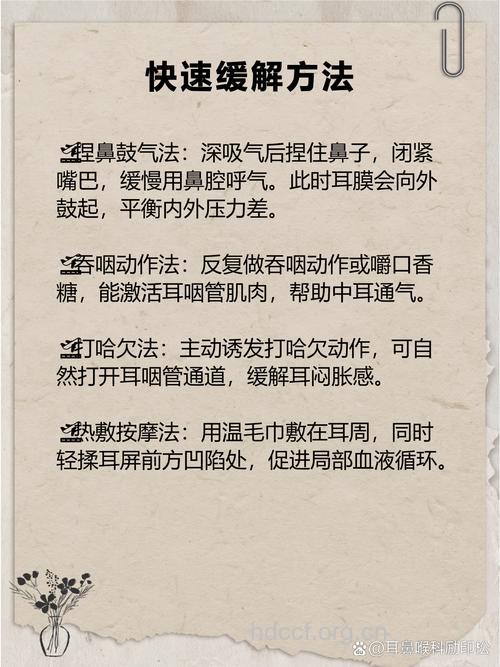 快速缓解方法
捏鼻鼓气法：深吸气后捏住鼻子，闭紧
嘴巴，缓慢用鼻腔呼气。此时耳膜会向外
鼓起，平衡内外压力差。
吞咽动作法：反复做吞咽动作或嚼口香
糖，能激活耳咽管肌肉，帮助中耳通气。
打哈欠法：主动诱发打哈欠动作，可自
然打开耳咽管通道，缓解耳闷胀感。
热敷按摩法：用温毛巾敷在耳周，同时
轻揉耳屏前方凹陷处，促进局部血液循环。
hdccf.org.cn
耳鼻喉科励印松